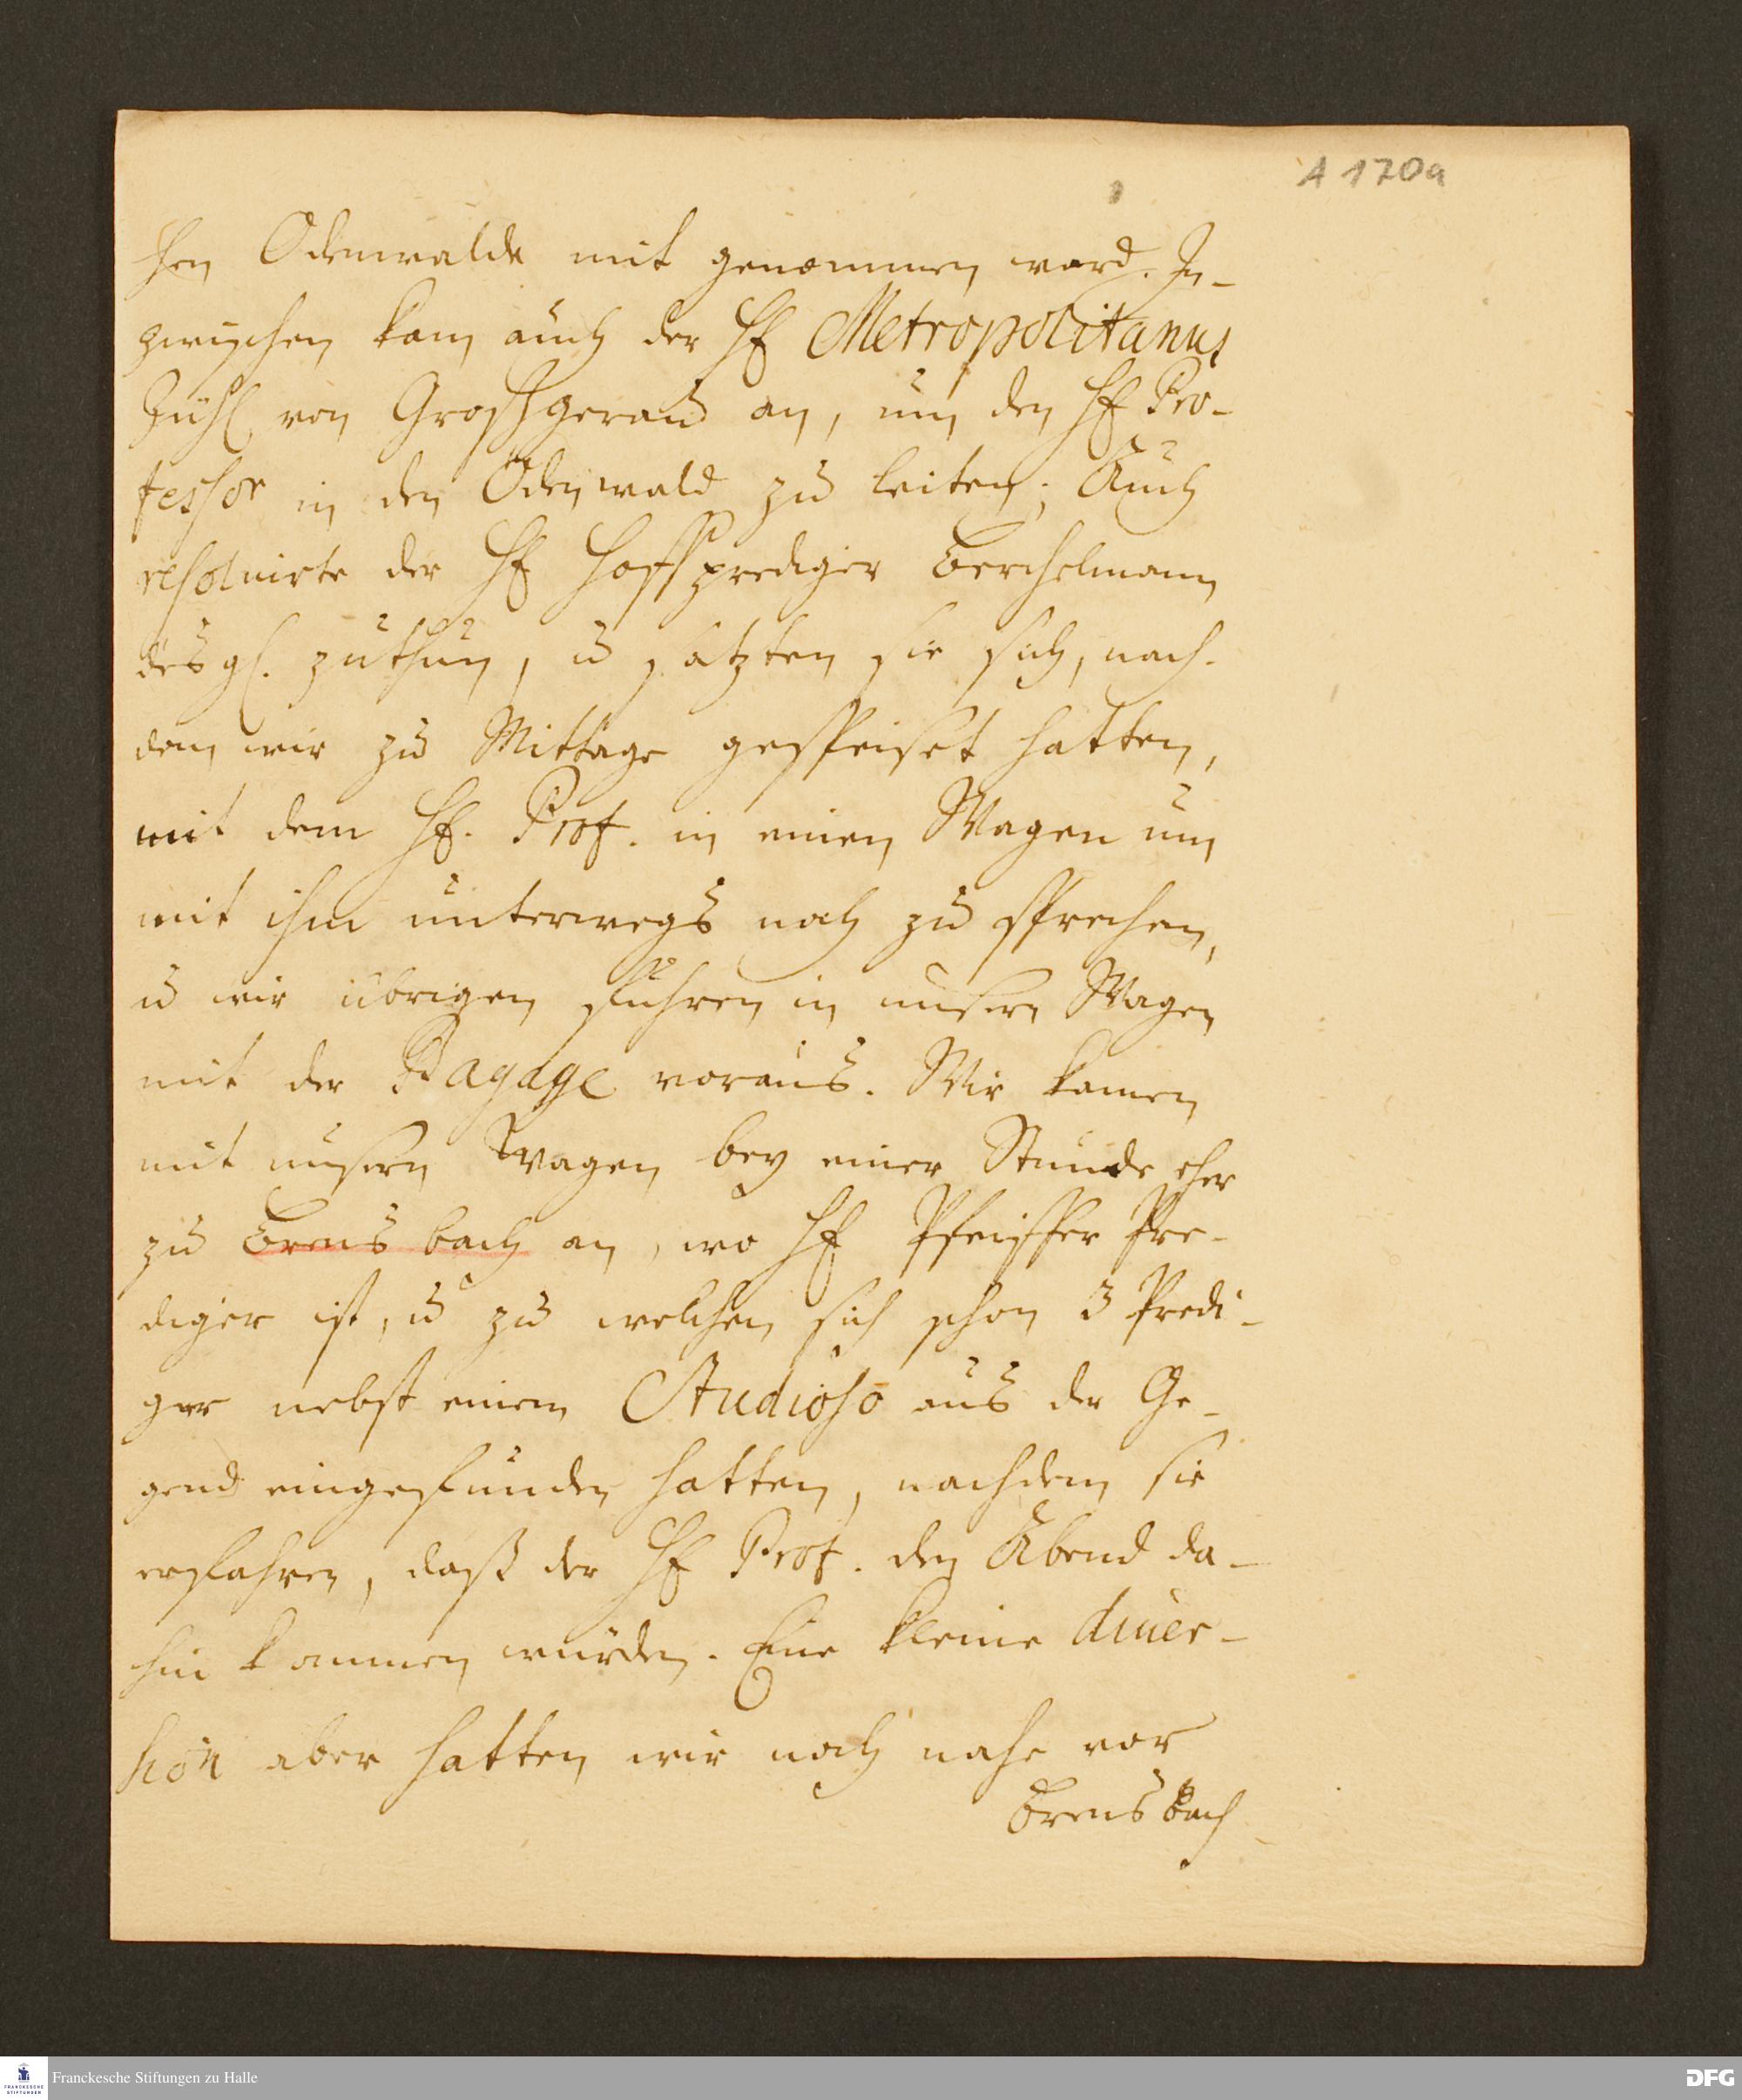 A 170a
hen Odenwalde mit genommen ward. In-
zwischen kam auch der H. Metropolitanus
Zühl von Großgerau an, um den H. Pro-
fessor in den Odenwald zu leiten; Auch
resoluirte der H. Hoffprediger Berchelmann
desgl. zuthun, u satzten sie sich, nach-
dem wir zu Mittage gespeiset hatten,
mit dem H. Prof. in einen Wagen um
mit ihm unterwegs noch zu sprechen,
u wir übrigen fuhren in unsern Wagen
mit der Bagage voraus. Wir kamen
mit unsern Wagen bey einer Stunde eher
zu Brensbach an, wo H. Pfeiffer Pre-
diger ist, u zu welchen sich schon 3 Predi-
ger nebst einem Studioso aus der Ge-
gend eingefunden hatten, nachdem sie
erfahren, daß der H. Prof. den Abend da-
hin kommen würden. Eine kleine diuer-
sion aber hatten wir noch nahe vor
Brensbach
Franckesche Stiftungen zu Halle
DFG